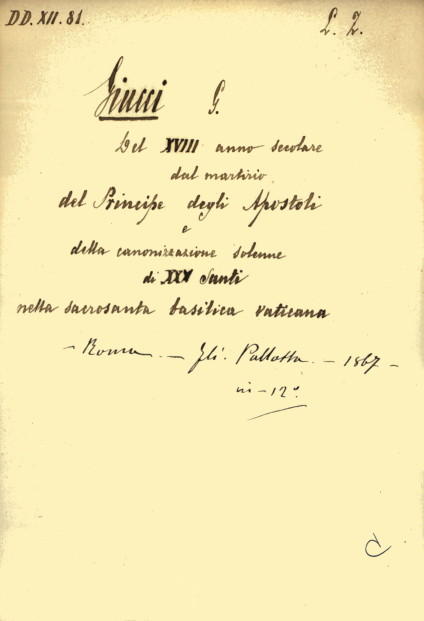 DD. XII. 81.
L. Z.
Giucci G.
Del XVIII anno secolare
dal martirio
del Principe degli Apostoli
e
della canonizzazione solenne
di XXV Santi
nella sacrosanta basilica vaticana
- Roma - Fli. Pallotta - 1867 -
in-12°.